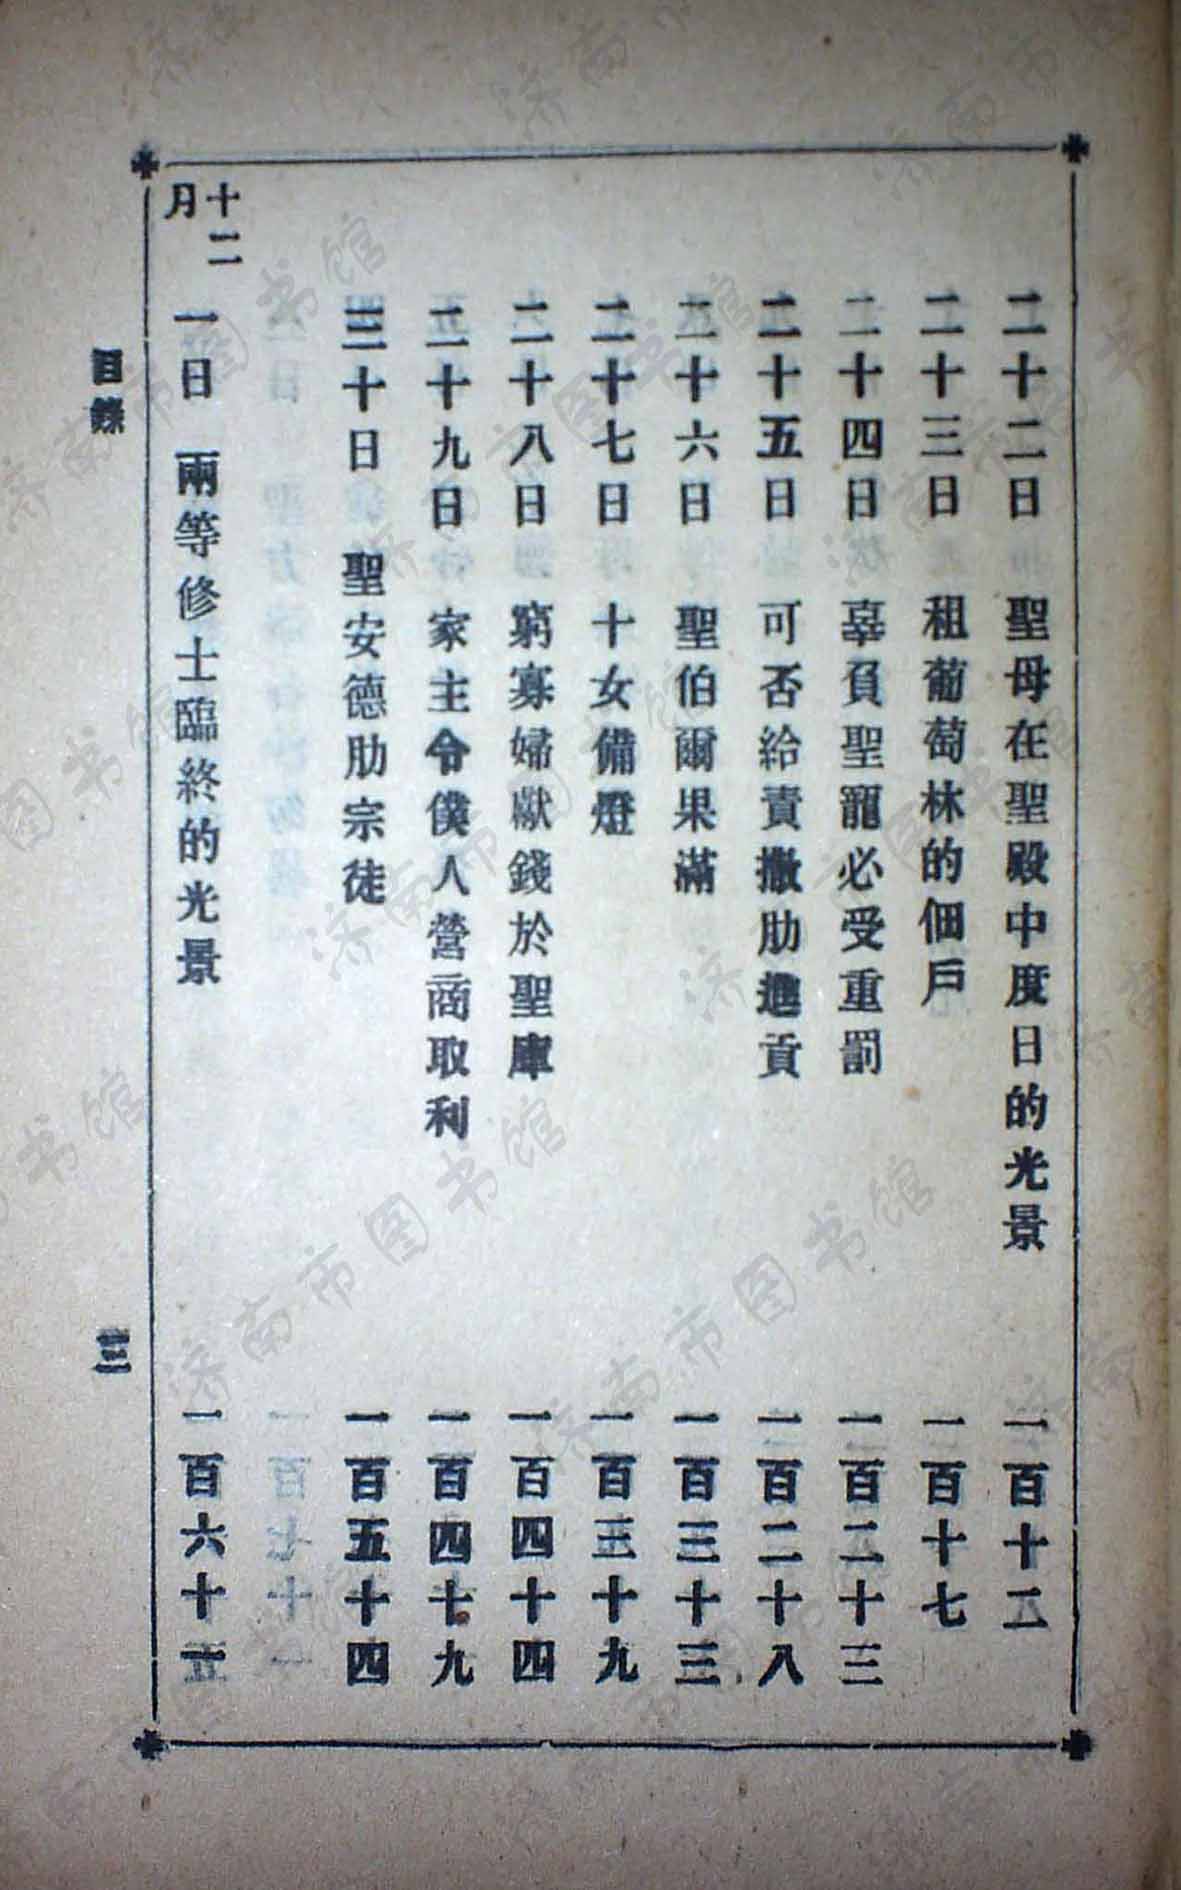 二十二日 聖母在聖殿中度日的光景 一百十二
二十三日 租葡萄林的佃戶 一百十七
二十四日 辜負聖寵必受重罰 一百二十三
二十五日 可否給責撒肋進貢 一百二十八
二十六日 聖伯爾果滿 一百三十三
二十七日 十女備燈 一百三十九
二十八日 窮寡婦獻錢於聖庫 一百四十四
二十九日 家主令僕人營商取利 一百四十九
三十日 聖安德肋宗徒 一百五十四
十二月
一日 兩等修士臨終的光景 一百六十
目錄
三
济南市图书馆